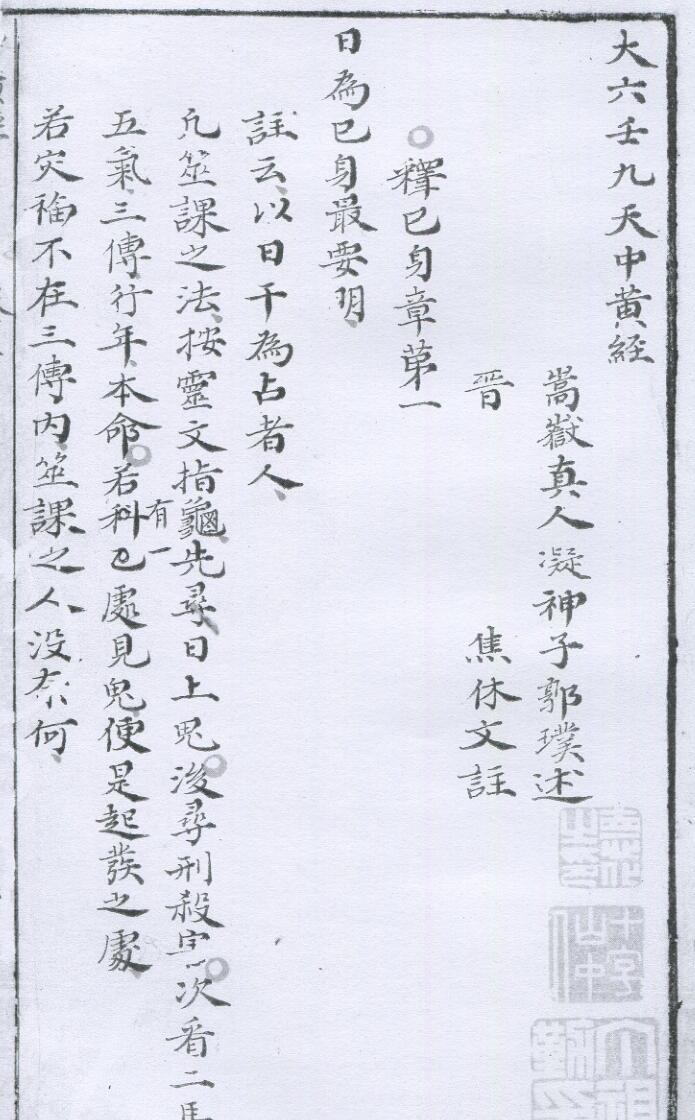 大六壬九天中黄経
嵩嶽真人凝神子郭璞述
晋　焦休文註
釋巳身章苐一
日為巳身最要明
註云以日干為占者人
凡筮課之法按靈文指龜先尋日上鬼後尋刑殺害次看二馬
五氣三傳行年本命若科有一處見鬼便是起發之處
若灾福不在三傳内筮課之人没奈何